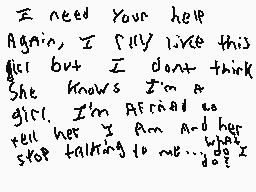 I need your help
Again, I rlly like this
girl but I dont think
She knows I'm A
girl. I'm Afriad to
tell her I Am And her
stop talking to me... what do I do?